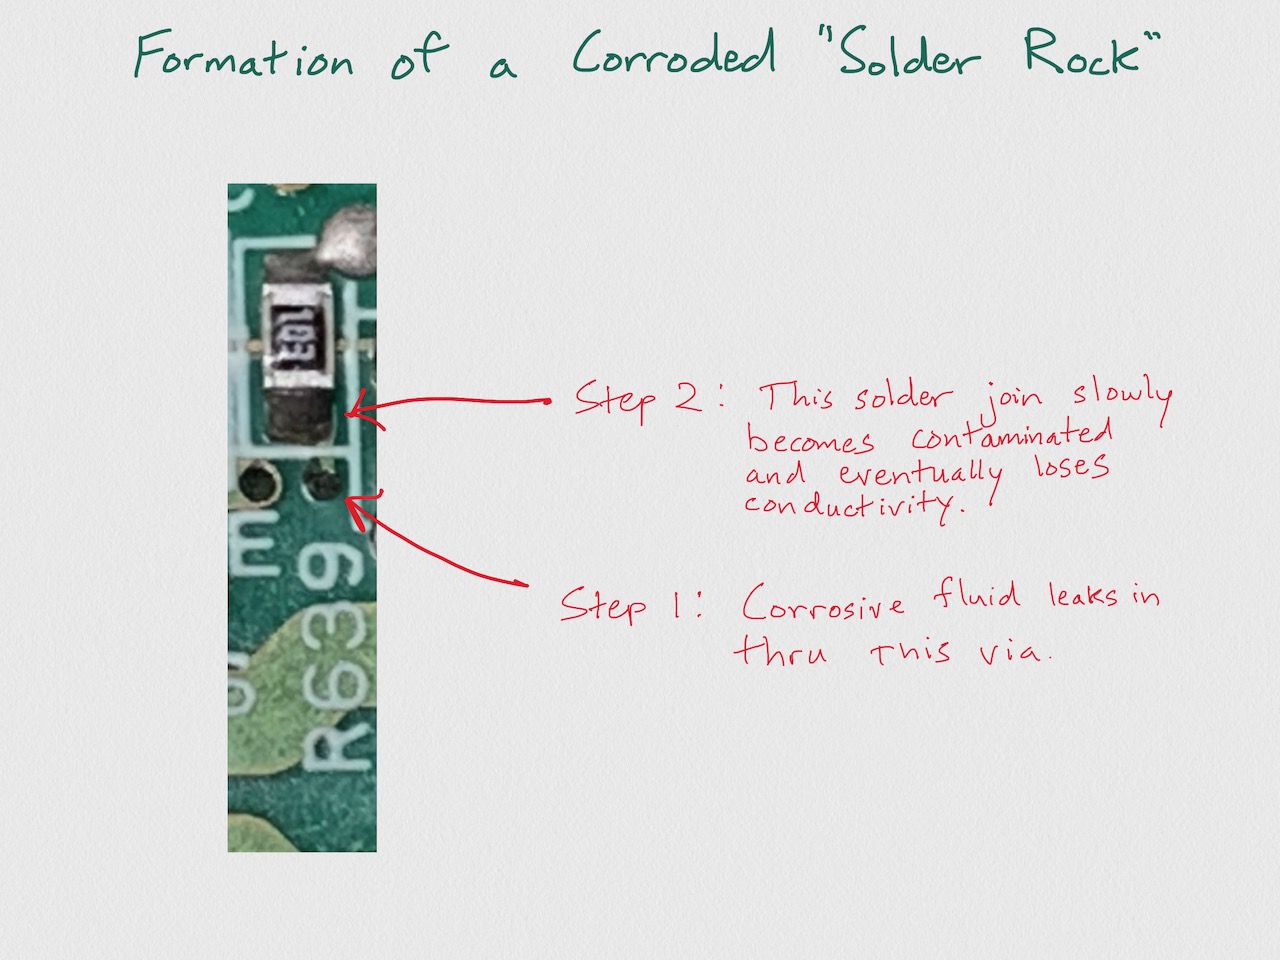 Formation of a Corroded "Solder Rock"
103
Step 2: This solder join slowly
becomes contaminated
and eventually loses
conductivity.
Step 1: Corrosive fluid leaks in
thru this via.
R639